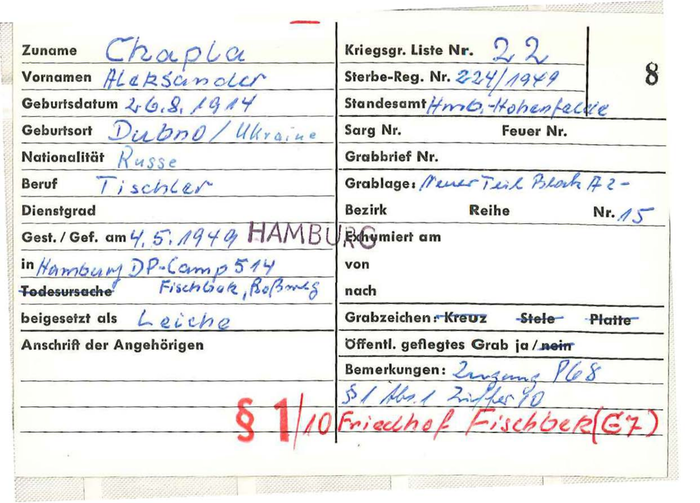 Zuname Chapla
Vornamen Aleksander
Geburtsdatum 26.8.1914
Geburtsort Dubno/Ukraine
Nationalität Russe
Beruf Tischler
Dienstgrad
Gest./Gef. am 4.5.1949 HAMBURG
in Hamburg DP-Camp 514
Todesursache Fischbek,
beigesetzt als Leiche
Anschrift der Angehörigen
§ 1/10
Kriegsgr. Liste Nr. 22
8
Sterbe-Reg. Nr. 224/1949
Standesamt Hmb.-Hohenfelde
Sarg Nr. Feuer Nr.
Grabbrief Nr.
Grablage: Neuer Teil Block A 2-
Bezirk Reihe Nr. 15
Exhumiert am
von
nach
Grabzeichen: Kreuz Stele Platte
Öffentl. gepflegtes Grab ja/nein
Bemerkungen: Zugang 1968
§ 1 Abs. 1 Ziffer 10
Friedhof Fischbek (E7)